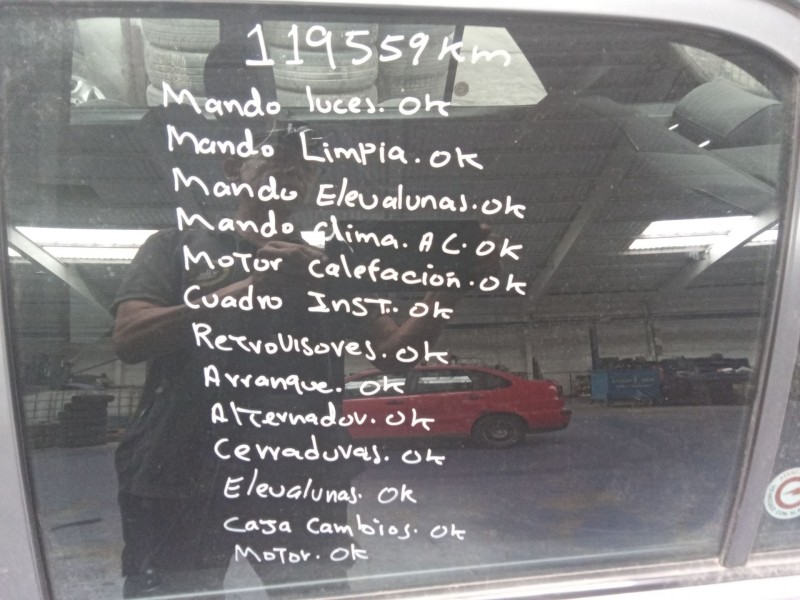 119559 km
Mando luces. OK
Mando Limpia. OK
Mando Elevalunas. OK
Mando clima. A C. OK
Motor calefacion. OK
Cuadro INST. OK
Retrovisores. OK
Arranque. OK
Alternador. OK
Cerraduras. OK
Elevalunas. OK
Caja Cambios. OK
Motor. OK